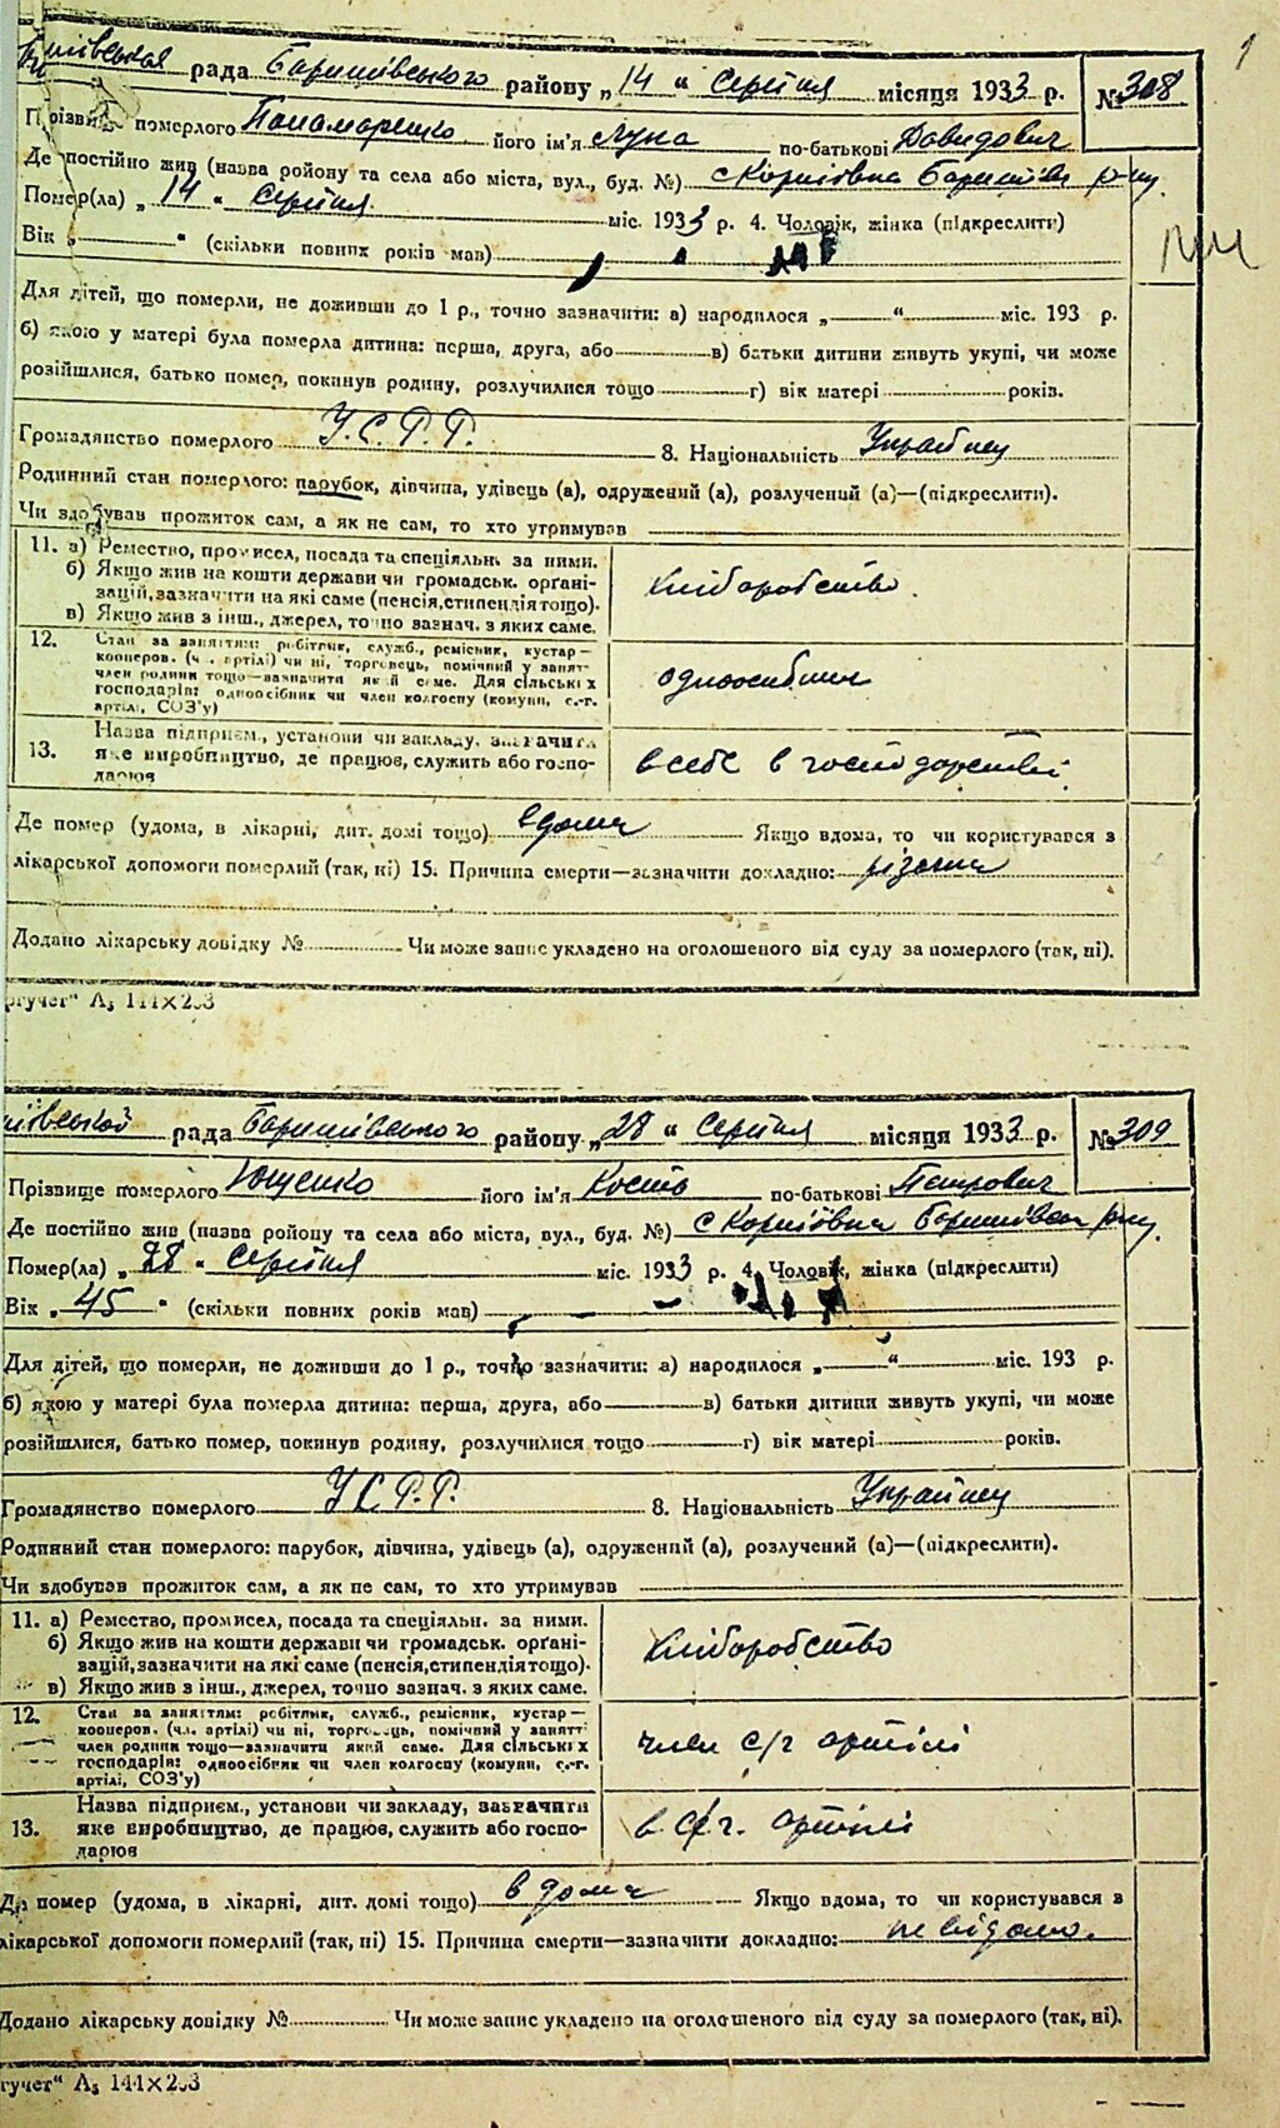 1
рада Баришівського району „14“ Серпня місяця 1933 р. № 308
Прізвище померлого Панамаренко його ім'я Лука по-батькові Давидович
Де постійно жив (назва ройону та села або міста, вул., буд. №) с Корніївка Баришів р-ну.
Помер(ла) „14“ Серпня міс. 1933 р. 4. Чоловік, жінка (підкреслити)
Вік „ “ (скільки повних років мав)
Для дітей, що померли, не доживши до 1 р., точно зазначити: а) народилося „ “ міс. 193 р.
б) якою у матері була померла дитина: перша, друга, або в) батьки дитини живуть укупі, чи може
розійшлися, батько помер, покинув родину, розлучилися тощо г) вік матері років.
Громадянство померлого У.С.Р.Р. 8. Національність Українец
Родинний стан померлого: парубок, дівчина, удівець (а), одружений (а), розлучений (а)—(підкреслити).
Чи здобував прожиток сам, а як не сам, то хто утримував
11. а) Ремество, промисел, посада та спеціяльн. за ними.
б) Якщо жив на кошти держави чи громадськ. орґані-
зацій, зазначити на які саме (пенсія, стипендія тощо).
в) Якщо жив з інш., джерел, точно зазнач. з яких саме.
хліборобство.
12. Стан за заняттям: робітник, служб., ремісник, кустар—
кооперов. (чл. артілі) чи ні, торговець, помічний у занят-
член родини тощо—зазначити який саме. Для сільських
господарів: одноосібник чи член колгоспу (комуни, с.-г.
артілі, СОЗ'у)
одноосибник
13. Назва підприєм., установи чи закладу, зазначити
яке виробництво, де працює, служить або госпо-
дарює
в себе в господарстві
Де помер (удома, в лікарні, дит. домі тощо) вдома Якщо вдома, то чи користувався з
лікарської допомоги померлий (так, ні) 15. Причина смерти—зазначити докладно:
Додано лікарську довідку № Чи може запис укладено на оголошеного від суду за померлого (так, ні).
ргучет“ А₅ 144×203
рада Баришівського району „28“ Серпня місяця 1933 р. № 309
Прізвище померлого Ющенко його ім'я Кость по-батькові Петрович
Де постійно жив (назва ройону та села або міста, вул., буд. №) с Корніївка Баришівськ р-ну.
Помер(ла) „28“ Серпня міс. 1933 р. 4. Чоловік, жінка (підкреслити)
Вік „45“ (скільки повних років мав)
Для дітей, що померли, не доживши до 1 р., точно зазначити: а) народилося „ “ міс. 193 р.
б) якою у матері була померла дитина: перша, друга, або в) батьки дитини живуть укупі, чи може
розійшлися, батько помер, покинув родину, розлучилися тощо г) вік матері років.
Громадянство померлого У.С.Р.Р. 8. Національність Українец
Родинний стан померлого: парубок, дівчина, удівець (а), одружений (а), розлучений (а)—(підкреслити).
Чи здобував прожиток сам, а як не сам, то хто утримував
11. а) Ремество, промисел, посада та спеціяльн. за ними.
б) Якщо жив на кошти держави чи громадськ. орґані-
зацій, зазначити на які саме (пенсія, стипендія тощо).
в) Якщо жив з інш., джерел, точно зазнач. з яких саме.
хліборобство
12. Стан за заняттям: робітник, служб., ремісник, кустар—
кооперов. (чл. артілі) чи ні, торговець, помічний у занятті
член родини тощо—зазначити який саме. Для сільських
господарів: одноосібник чи член колгоспу (комуни, с.-г.
артілі, СОЗ'у)
член с/г артілі
13. Назва підприєм., установи чи закладу, зазначити
яке виробництво, де працює, служить або госпо-
дарює
в с/г. артілі
Де помер (удома, в лікарні, дит. домі тощо) в дома Якщо вдома, то чи користувався з
лікарської допомоги померлий (так, ні) 15. Причина смерти—зазначити докладно: не відомо.
Додано лікарську довідку № Чи може запис укладено на оголошеного від суду за померлого (так, ні).
гучет“ А₅ 144×203